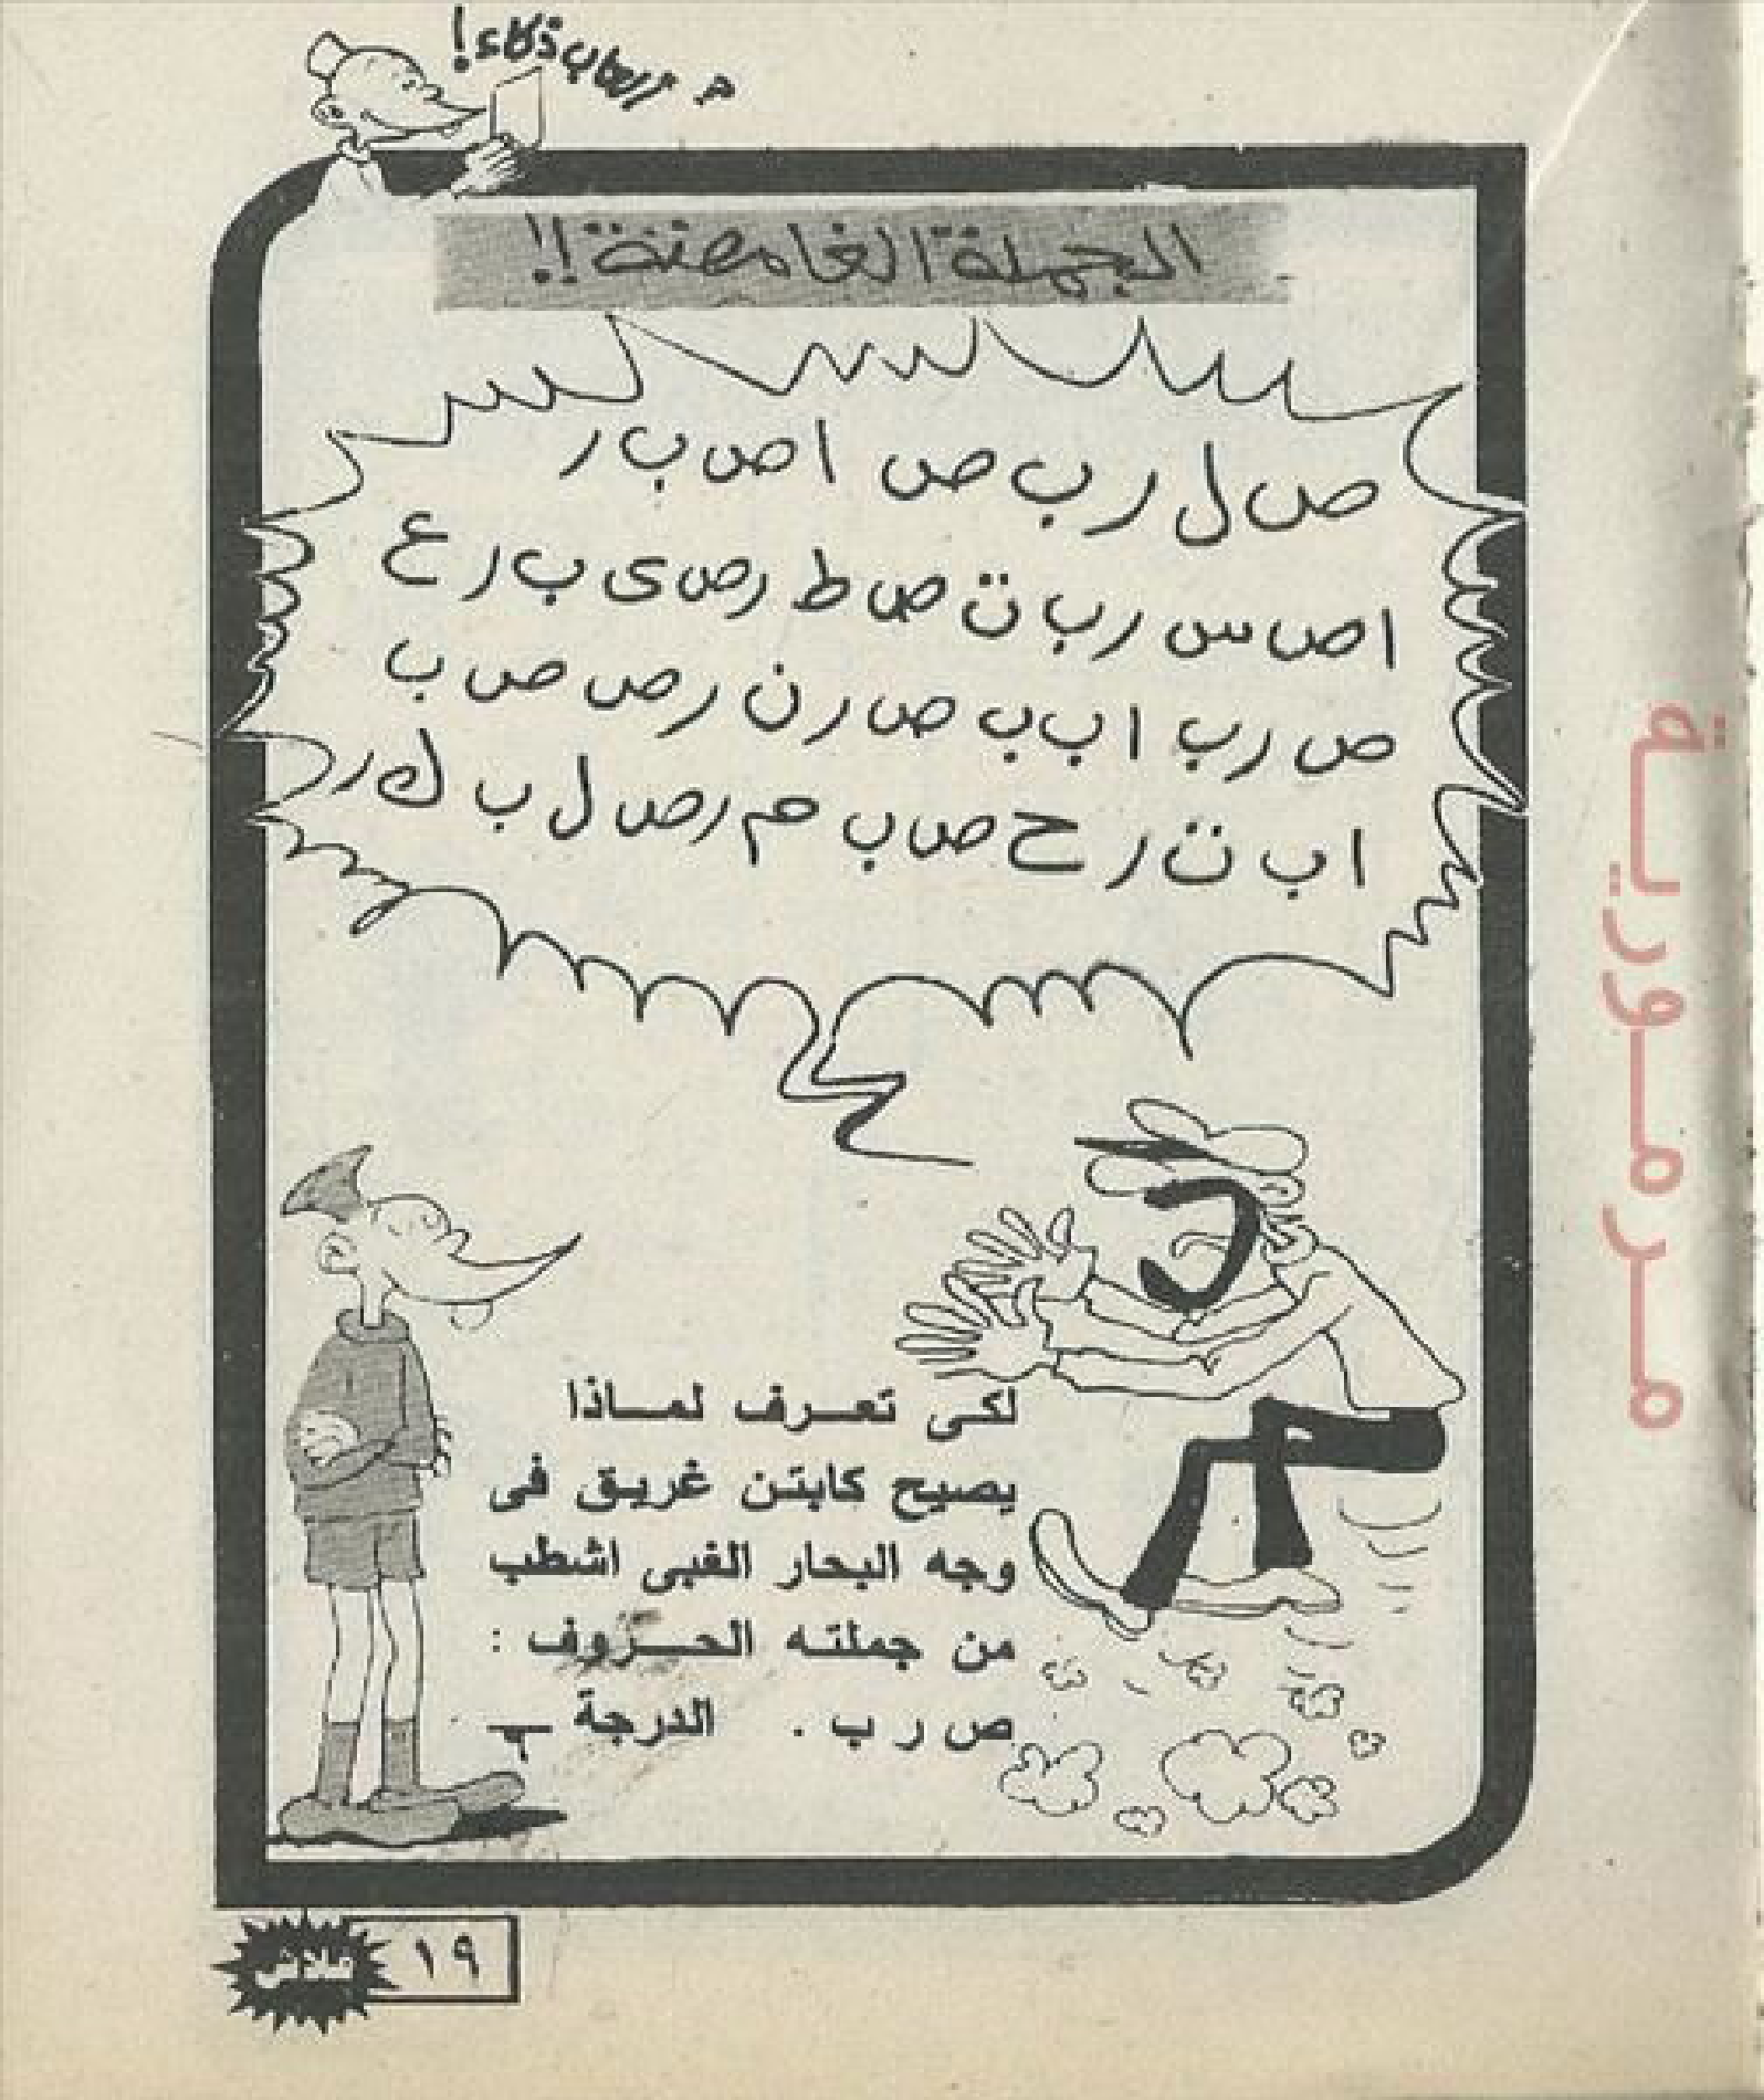 العاب ذكاء!
الجملة الغامضة!!
ص ل ر ب ص ا ص ب ر
ا ص س ر ب ت ص ط ر ص ى ب ر ع
ص ر ب ا ب ب ص ر ن ر ص ص ب
ا ب ت ر ح ص ب م ر ص ل ب ك ر
لكى تعرف لماذا
يصيح كابتن غريق فى
وجه البحار الغبى اشطب
من جملته الحروف :
ص ر ب . الدرجة
١٩
فلاش
مرمورية